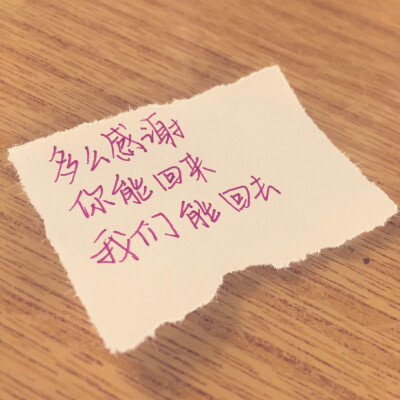 多么感谢
你能回来
我们能回去